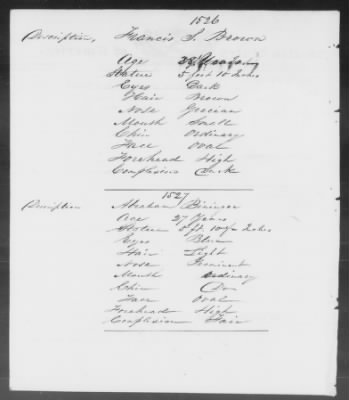 1526
Description, Francis S. Brown
Age 35 Years
Stature 5 feet 10 Inches
Eyes Dark
Hair Brown
Nose Grecian
Mouth Small
Chin Ordinary
Face Oval
Forehead High
Complexion Dark
1527
Description Abraham
Age 27 Years
Stature 5 ft. 10 Inches
Eyes Blue
Hair Light
Nose Prominent
Mouth Ordinary
Chin Do
Face Oval
Forehead High
Complexion Fair